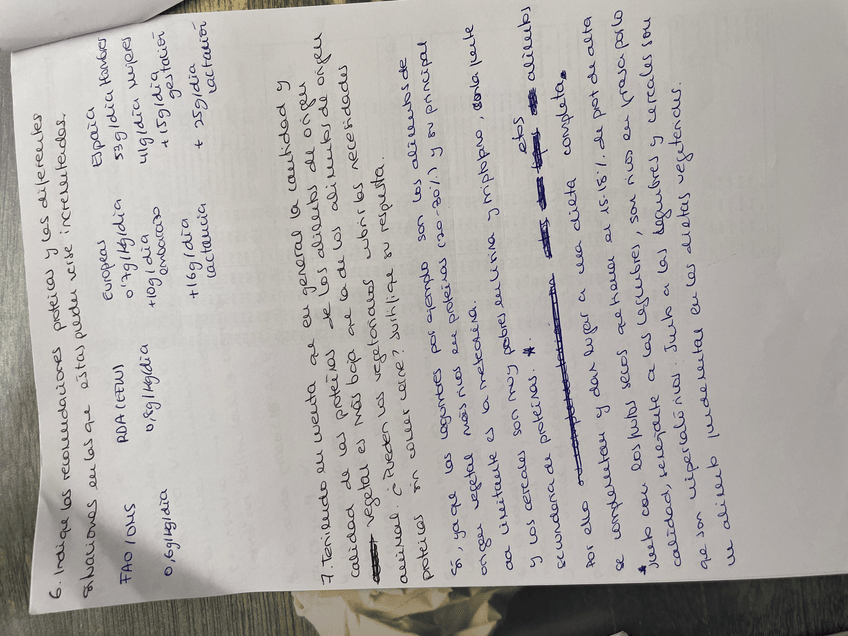 6. Indique las recomendaciones proteicas y las diferentes
situaciones en las que éstas pueden verse incrementadas.
FAO/OMS RDA (EEUU) Europeas España
0,6g/kg/día 0,8g/kg/día 0'7g/kg/día 53g/día Hombres
+10g/día embarazo 41g/día mujeres
+16g/día lactancia +15g/día gestación
+ 25g/día lactación
7. Teniendo en cuenta que en general la cantidad y
calidad de las proteínas de los alimentos de origen
vegetal es más baja que la de los alimentos de origen
animal. ¿Pueden los vegetarianos cubrir las necesidades
proteicas sin comer carne? Justifique su respuesta.
Sí, ya que las legumbres por ejemplo son los alimentos de
origen vegetal más ricos en proteínas (20-30%) y su principal
aa limitante es la metionina.
y los cereales son muy pobres en lisina y triptófano, son la fuente
secundaria de proteínas. * etos alimentos
Por ello
se complementan y dar lugar a una dieta completa.
* Junto con los frutos secos que tienen un 15-18% de prot de alta
calidad, semejante a las legumbres, son ricos en grasa por lo
que son hipercalóricos. Junto a las legumbres y cereales son
un alimento fundamental en las dietas vegetarianas.